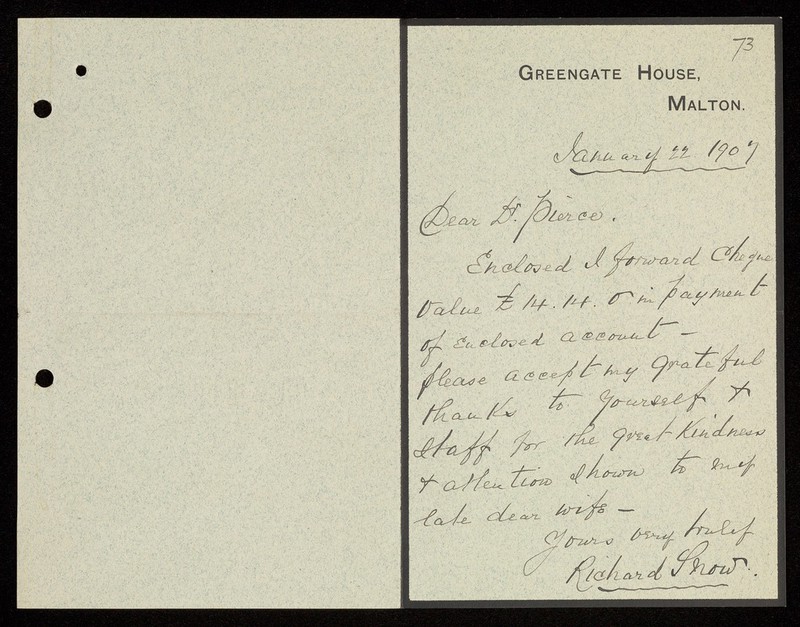 73
GREENGATE HOUSE,
MALTON.
January 22 1907
Dear Dr. Pierce.
Enclosed I forward Cheque
Value £ 14. 14. 0 in payment
of enclosed account -
please accept my grateful
thanks to yourself &
Staff for the great Kindness
& attention shown to my
late dear wife -
Yours very truly
Richard Snow.